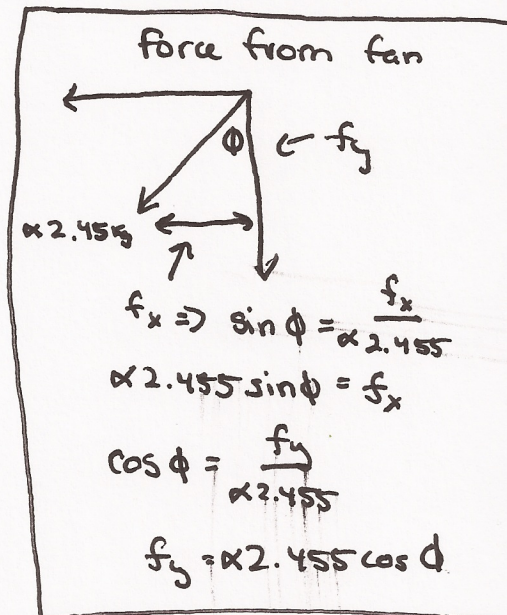 force from fan
ϕ ← fy
∝2.45kg
fx ⇒ sin ϕ = fx / ∝2.455
∝2.455 sinϕ = fx
cos ϕ = fy / ∝2.455
fy = ∝2.455 cos ϕ